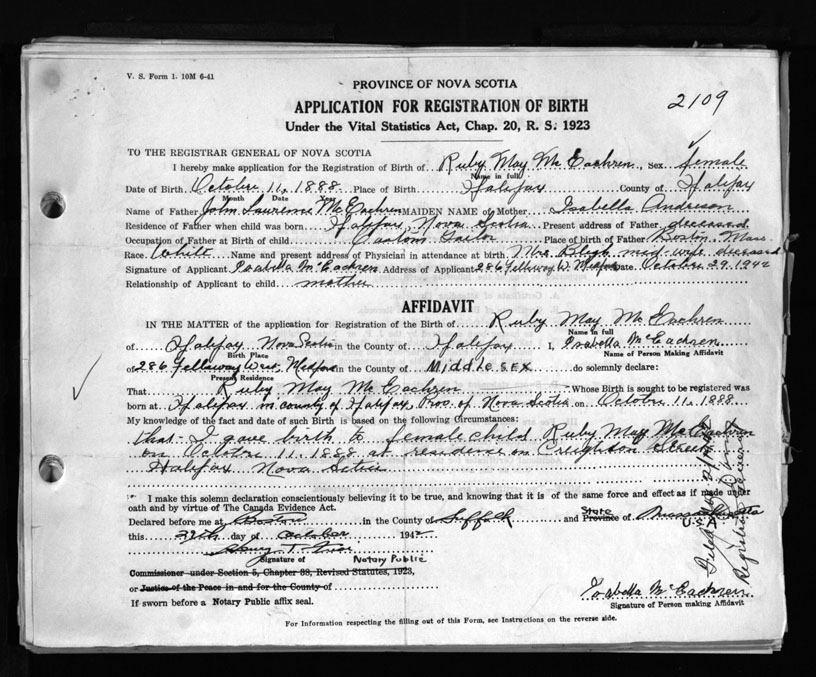 V. S. Form 1. 10M 6-41
PROVINCE OF NOVA SCOTIA
2109
APPLICATION FOR REGISTRATION OF BIRTH
Under the Vital Statistics Act, Chap. 20, R. S. 1923
TO THE REGISTRAR GENERAL OF NOVA SCOTIA
I hereby make application for the Registration of Birth of Ruby May McEachren, Sex female
Name in full
Date of Birth October 11, 1888 Place of Birth Halifax County of Halifax
Month Date Year
Name of Father John Laurence McEachren MAIDEN NAME of Mother Isabella Anderson
Residence of Father when child was born Halifax, Nova Scotia Present address of Father deceased
Occupation of Father at Birth of child Custom Tailor Place of birth of Father Boston, Mass
Race White Name and present address of Physician in attendance at birth Mrs. mid-wife deceased
Signature of Applicant Isabella McEachren Address of Applicant 286 Fellsway W. Medford Date October 29, 1942
Relationship of Applicant to child mother
AFFIDAVIT
IN THE MATTER of the application for Registration of the Birth of Ruby May McEachren
Name in full
of Halifax Nova Scotia in the County of Halifax I, Isabella McEachren
Birth Place Name of Person Making Affidavit
of 286 Fellsway West, Medford in the County of MIDDLESEX do solemnly declare:
Present Residence
That Ruby May McEachren Whose Birth is sought to be registered was
born at Halifax in county of Halifax, Prov. of Nova Scotia on October 11, 1888
My knowledge of the fact and date of such Birth is based on the following Circumstances:
that I gave birth to female child Ruby May McEachren
on October 11, 1888 at residence on Creighton Street
Halifax Nova Scotia
I make this solemn declaration conscientiously believing it to be true, and knowing that it is of the same force and effect as if made under
oath and by virtue of The Canada Evidence Act.
Declared before me at Boston in the County of Suffolk and State Province of Massachusetts
U.S.A.
this 29th day of October 1942
Signature of Notary Public
Commissioner under Section 5, Chapter 38, Revised Statutes, 1923,
or Justice of the Peace in and for the County of
If sworn before a Notary Public affix seal.
Isabella McEachren
Signature of Person making Affidavit
For Information respecting the filling out of this Form, see Instructions on the reverse side.